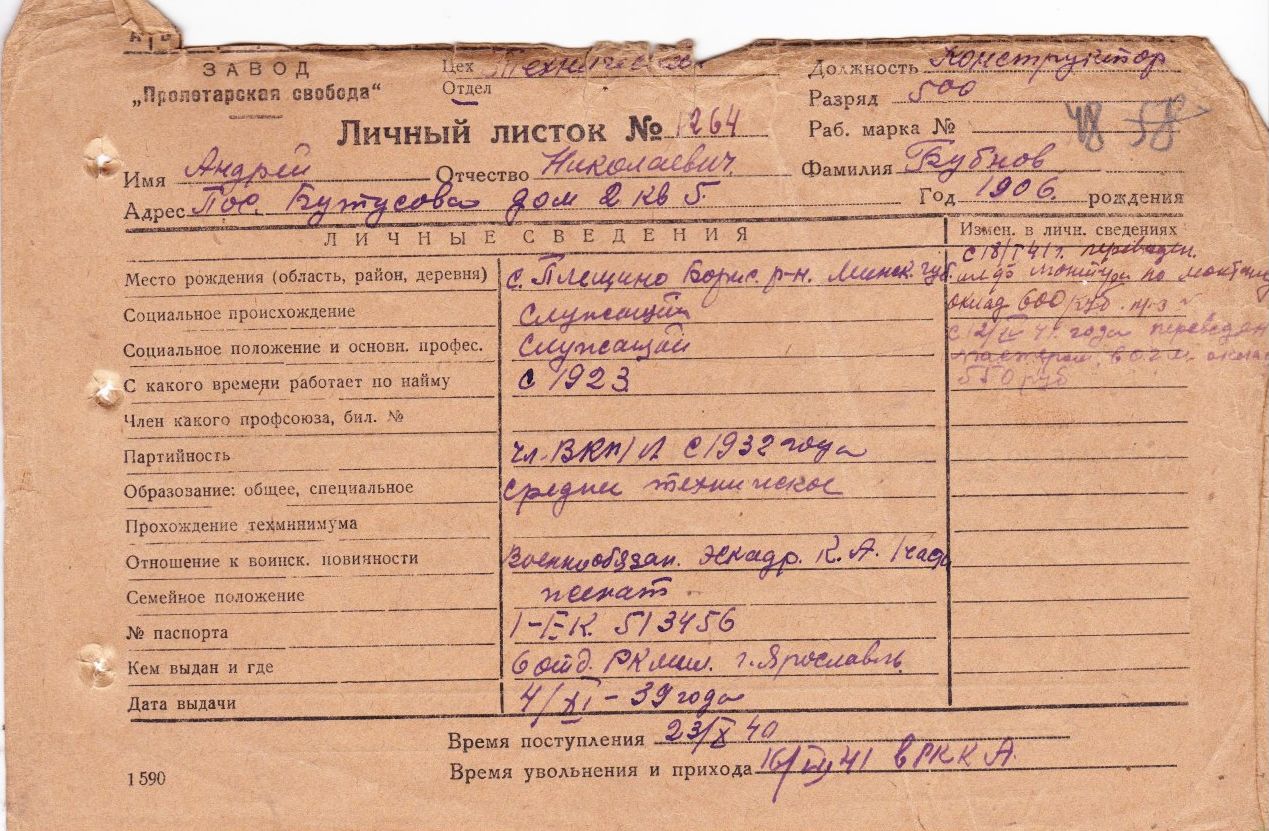 ЗАВОД
„Пролетарская свобода“
Цех
Отдел
Должность Конструктор
Разряд 500
Личный листок № 1264
Раб. марка № 48 58
Имя Андрей Отчество Николаевич Фамилия Бубнов
Адрес Пос. Бутусова дом 2 кв 5. Год 1906. рождения
ЛИЧНЫЕ СВЕДЕНИЯ
Измен. в личн. сведениях
Место рождения (область, район, деревня) с. Плещино Борис. р-н. Минск. губ.
Социальное происхождение Служащий
Социальное положение и основн. профес. Служащий
С какого времени работает по найму с 1923
Член какого профсоюза, бил. №
Партийность чл. ВКП/ с 1932 года
Образование: общее, специальное средне техническое
Прохождение техминимума
Отношение к воинск. повинности Военнообязан. К. А.
Семейное положение женат
№ паспорта 513456
Кем выдан и где 6 отд. РКмил. г. Ярославль
Дата выдачи 4/XI-39 года
переведен
оклад 600 руб.
41 года переведен
мастером
550 руб
Время поступления 23/X 40
Время увольнения и прихода 41 в РККА.
1590